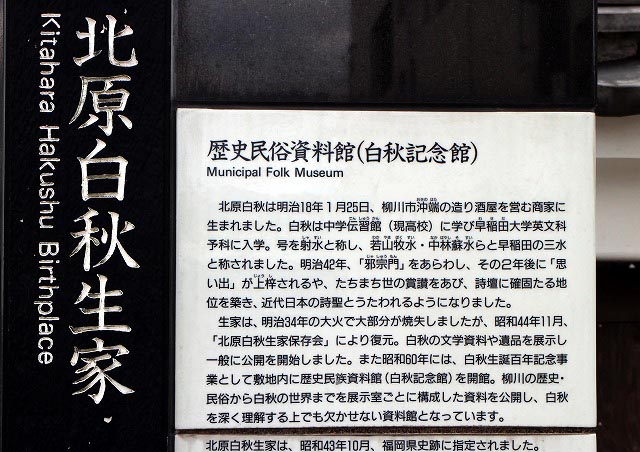 北原白秋生家
Kitahara Hakushu Birthplace
歴史民俗資料館(白秋記念館)
Municipal Folk Museum
北原白秋は明治18年1月25日、柳川市沖端の造り酒屋を営む商家に
生まれました。白秋は中学伝習館（現高校）に学び早稲田大学英文科
予科に入学。号を射水と称し、若山牧水・中林蘇水らと早稲田の三水
と称されました。明治42年、「邪宗門」をあらわし、その2年後に「思
い出」が上梓されるや、たちまち世の賞讃をあび、詩壇に確固たる地
位を築き、近代日本の詩聖とうたわれるようになりました。
生家は、明治34年の大火で大部分が焼失しましたが、昭和44年11月、
「北原白秋生家保存会」により復元。白秋の文学資料や遺品を展示し
一般に公開を開始しました。また昭和60年には、白秋生誕百年記念事
業として敷地内に歴史民族資料館（白秋記念館）を開館。柳川の歴史・
民俗から白秋の世界までを展示室ごとに構成した資料を公開し、白秋
を深く理解する上でも欠かせない資料館となっています。
北原白秋生家は、昭和43年10月、福岡県史跡に指定されました。